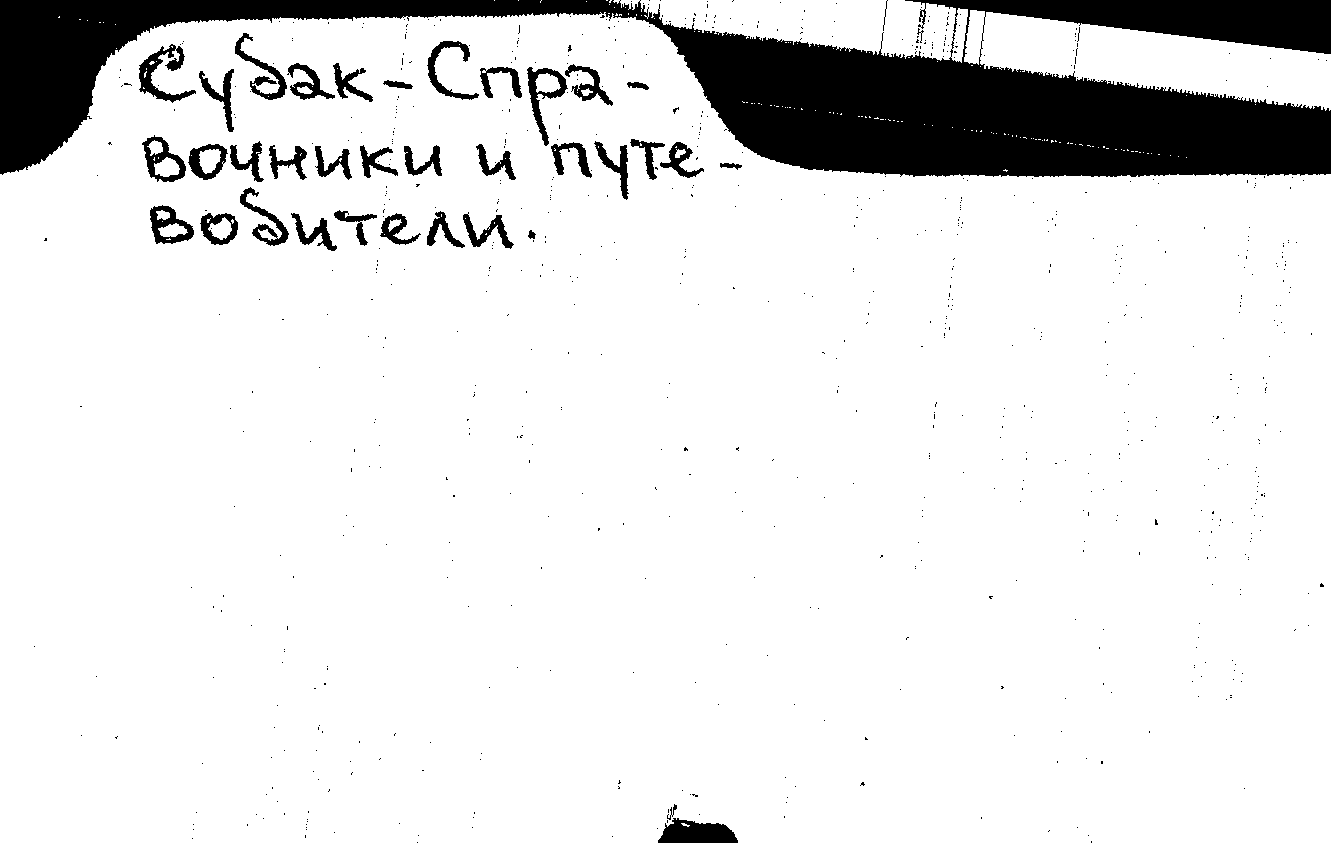 Субак-Спра-
вочники и путе-
водители.